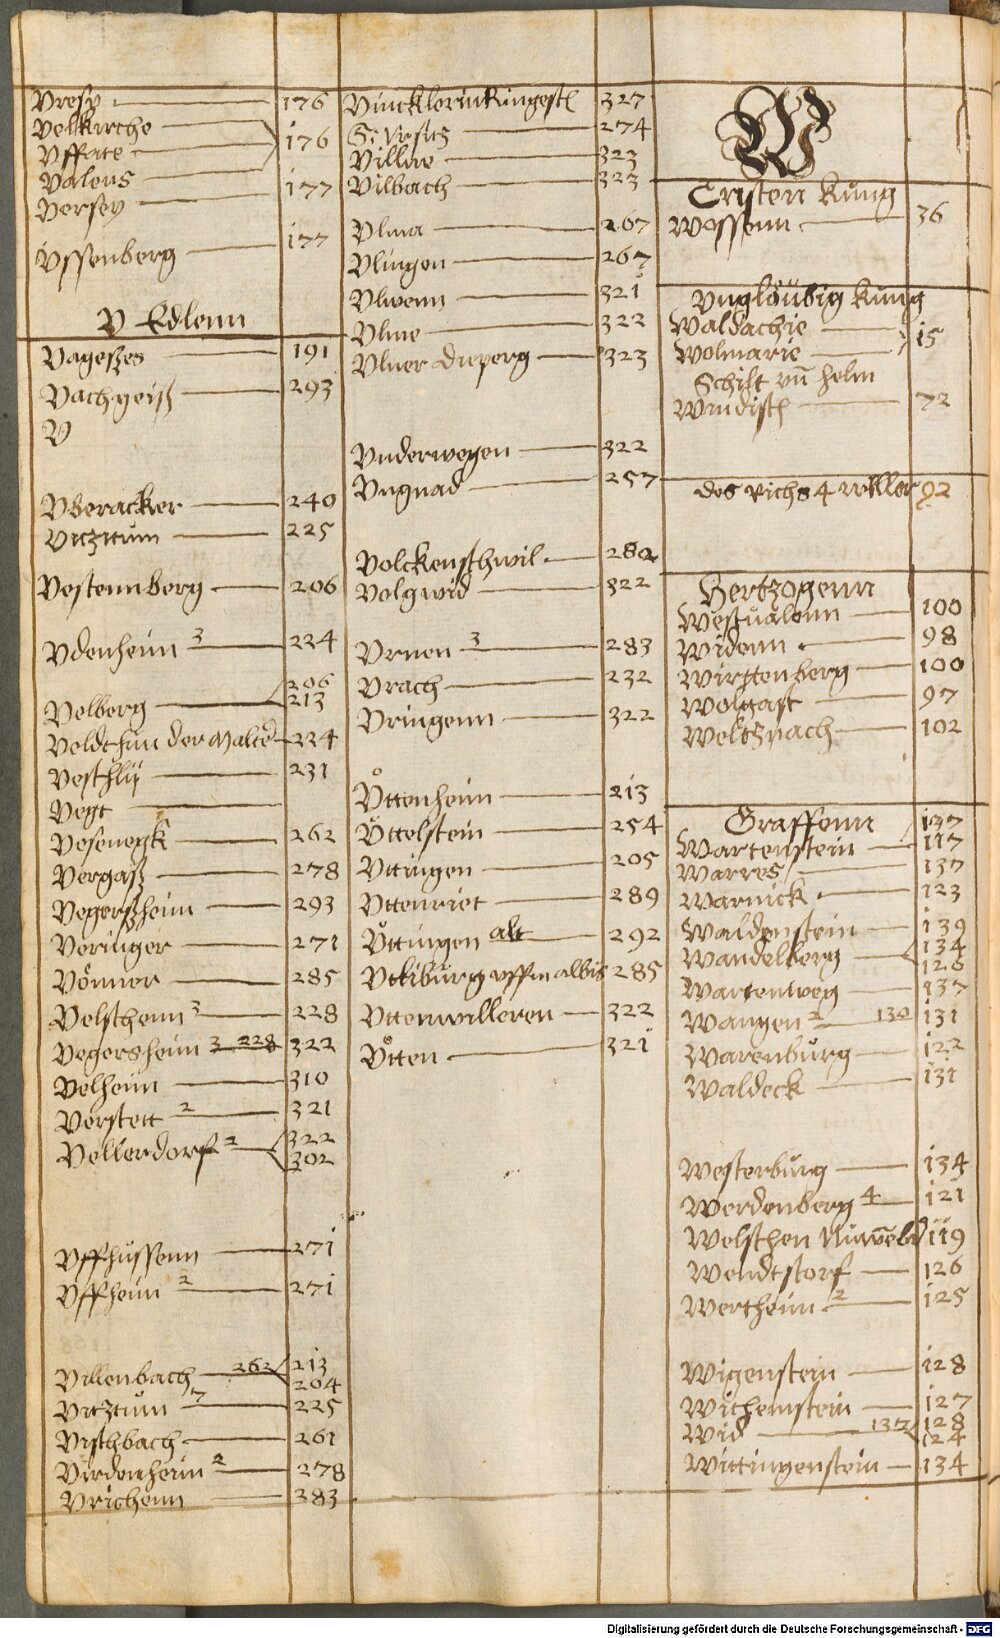 Vresy 176
Velkirche
Vffate 176
Valens
Versey 177
Vssenberg 177
V Edlenn
Vageszes 191
Vachgeiß 293
V
Vberacker 240
Vitzitum 225
Vestennberg 206
Vdenheim 3 224
206
Velberg 213
Veldthun der Malted 224
Vesthlÿ 231
Vegt
Vesenegk 262
Vergaß 278
Vegerßheim 293
Veringer 271
Vönner 285
Velsthenn 3 228
Vegersheim 3 228 322
Velheim 310
Verstett 2 321
Vellerdorf 2 322
302
Vffhussenn 271
Vffheim 2 271
Villenbach 262 213
204
Vitztum 7 225
Visthbach 261
Virdenheim 2 278
Vrichenn 283
Vincklerin Ringest 327
S: Visitz 274
Villae 323
Vilbach 323
Vlma 267
Vlingen 267
Vlwenn 321
Vlme 322
Vlner Dieperg 323
Vnderwegen 322
Vngnad 257
Volckensthwil 280
Volgwid 322
Vrnen 3 283
Vrach 232
Vringenn 322
Vttenheim 213
Vttelstein 254
Vttingen 205
Vttenriet 289
Vttingen alt 292
Vtkiburg vffm albis 285
Vttenwilleren 322
Vtten 321
W
Cristen Kung
Wossenn 36
Vngläubig Kung
Waldachie
Wolmarie 15
Schilt vn helm
Windist 72
des Richs 4 willer 92
Hertzogenn
Westualenn 100
Widenn 98
Wirttenberg 100
Wolgast 97
Weltznach 102
Graffenn 137
Wartenstein 117
Warres 137
Warnick 123
Waldenstein 139
Wandelberg 134
126
Wartenweg 137
Wangen 2 130 131
Warenburg 122
Waldeck 131
Westerburg 134
Werdenberg 4 121
Welschen Nuwenb 119
Wendtstorf 126
Wertheim 2 125
Wigenstein 128
Withemstein 127
Wid 137 128
124
Wittingenstein 134
Digitalisierung gefördert durch die Deutsche Forschungsgemeinschaft - DFG